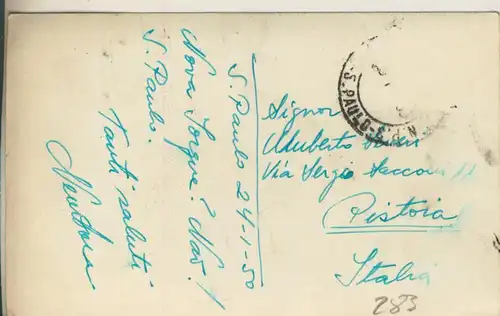 S. Paulo 24-1-50
Nova Iorque? Não!
S. Paulo.
Tanti saluti
S. PAULO-S.P.
Signor
Umberto
Via Sergio Sacconi
Pistoia
Italia
283